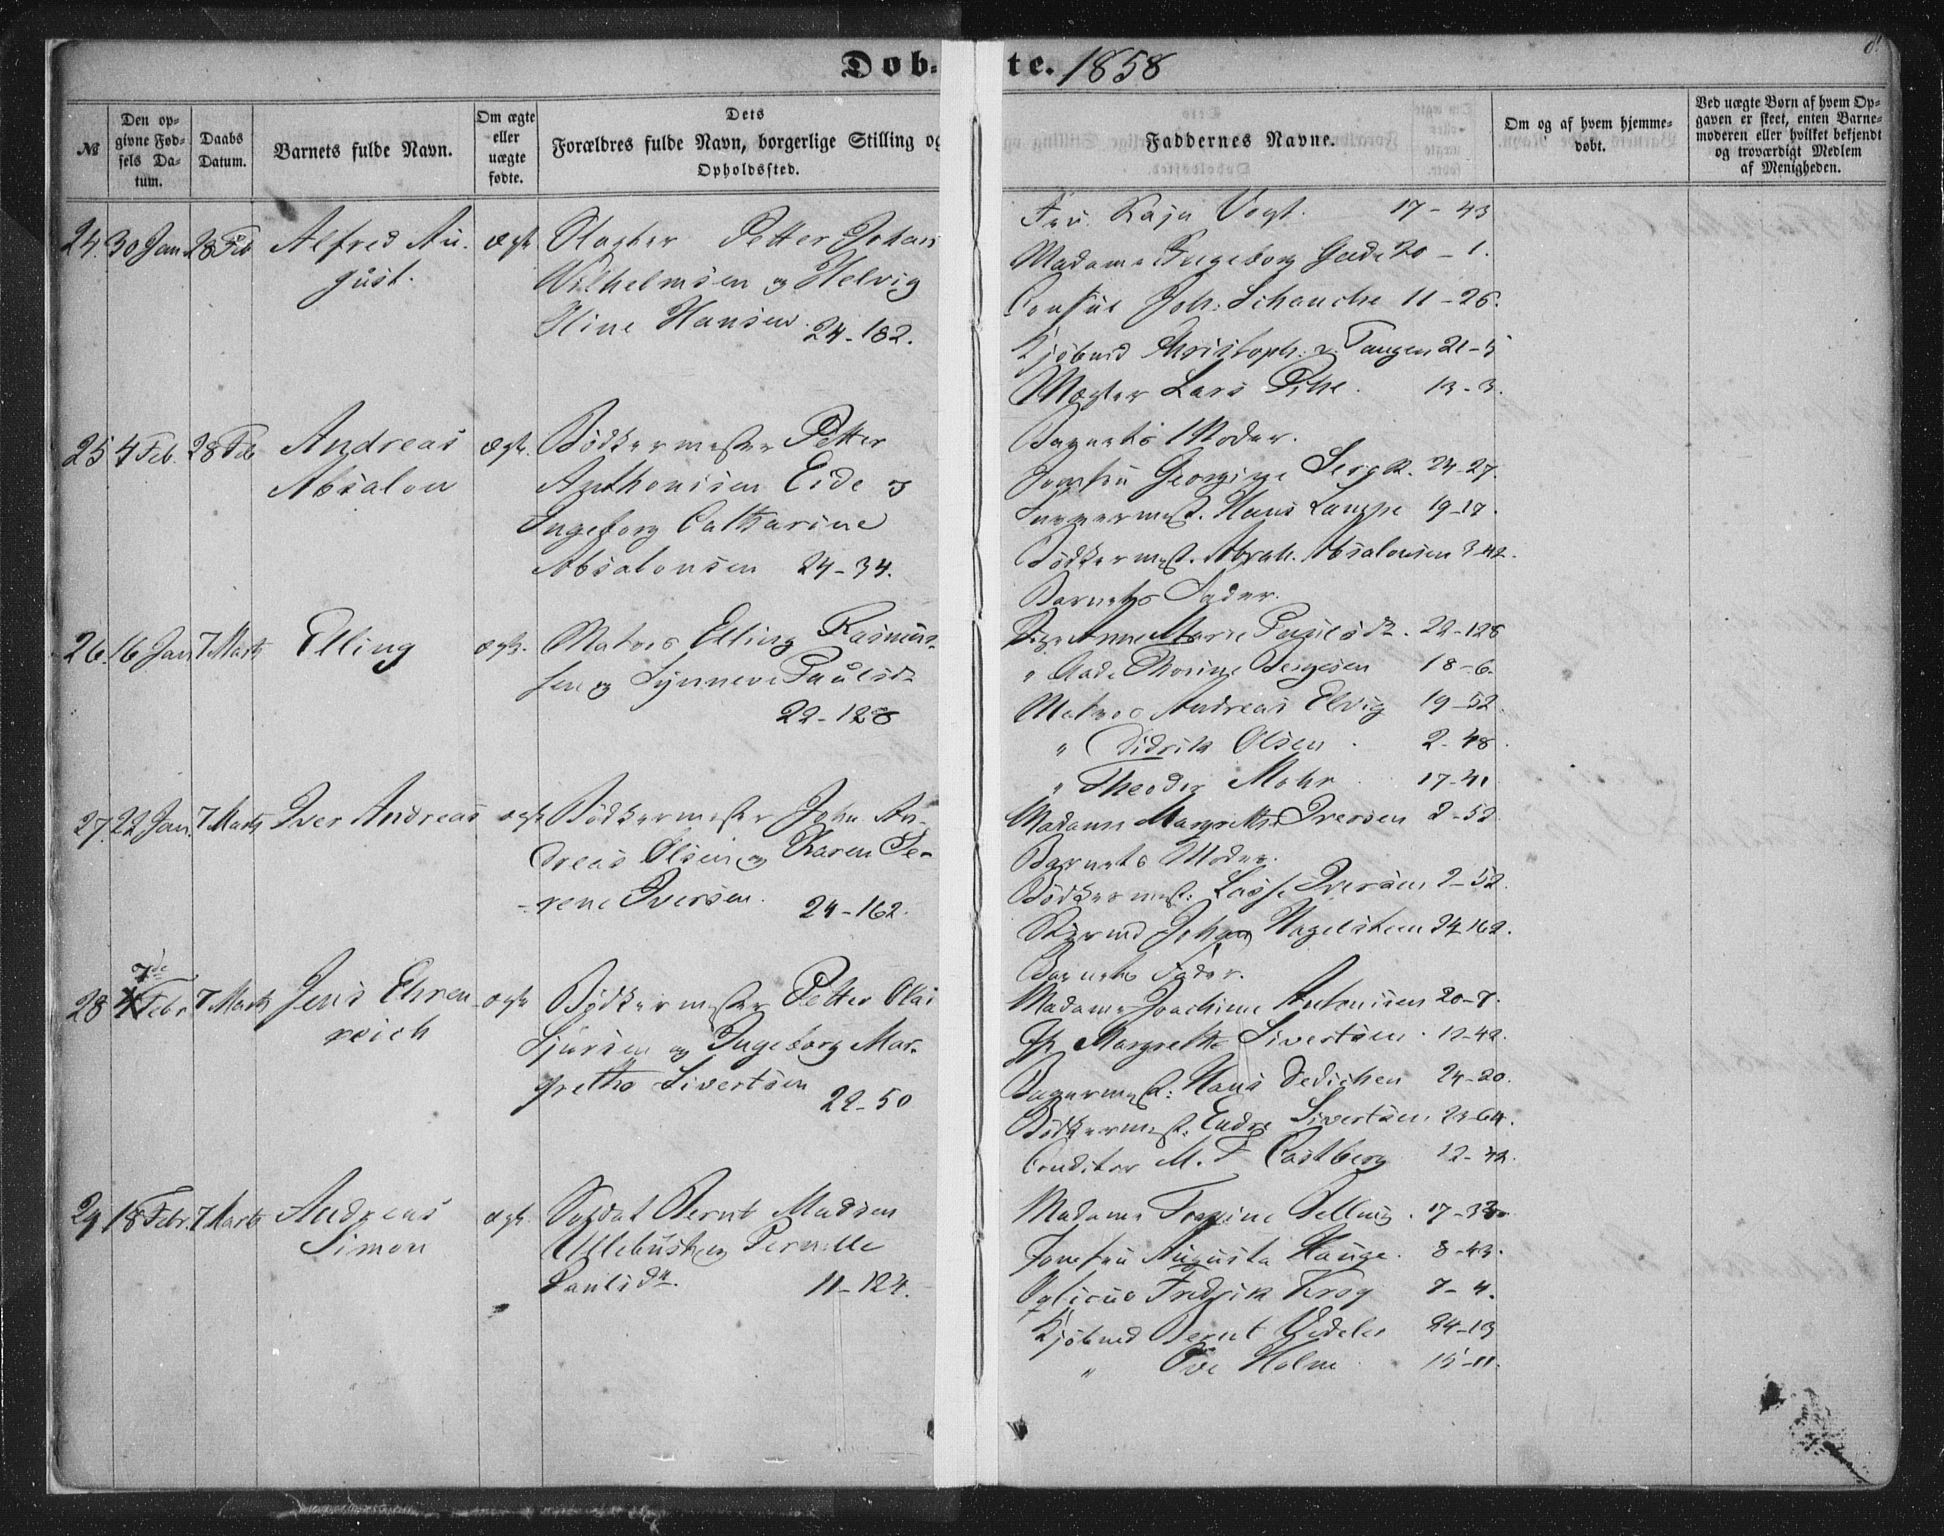 Døb-te. 1858
№
Den opgivne Fødsels Datum.
Daabs Datum.
Barnets fulde Navn.
Om ægte eller uægte fødte.
Dets
Forældres fulde Navn, borgerlige Stilling og
Opholdssted.
Faddernes Navne.
Om og af hvem hjemmedøbt.
Ved uægte Børn af hvem Opgaven er skeet, enten Barnemoderen eller hvilket bekjendt og troværdigt Medlem af Menigheden.
24. 30 Jan 28 Feb Alfred Au- ægte Petter Johan
gust. Wilhelmsen og Helvig
Oline Hansen. 24-182.
Fru Kaja Vogt. 17-43
Madame Ingeborg Gade 20-1.
Consul Joh: Schanche 11-26.
Kjøbmd Christoph: v: Tangen 21-5
Mægler Lars Pihl. 13-3.
25 4 Feb. 28 Feb Andreas ægte. Bødkermester Petter
Absalon Anthonisen Eide og
Ingeborg Catharine
Absalonsen 24-34.
Barnets Moder.
Jomfru Georgine 24-27.
Hans Lampe 19-17.
Bødkermest. Abrah. Absalonsen 3-42.
Barnets Fader.
26. 16 Jan 7 Marts Elling ægte. Matros Elling Rasmus-
sen og Synneve Paulsdr
22-128
Pige Anne Marie Paulsdr. 22-128
" Aade Thorine Bergesen 18-6.
Matros Andreas Elvig 19-52.
" Didrik Olsen. 2-48.
" Theodor Mohr. 17-41
27. 22 Jan. 7 Marts Iver Andreas ægte Bødkermester John An-
dreas Olsen og Karen Se-
rene Iversen. 24-162.
Madame Margrethe Iversen 2-52
Barnets Moder.
Bødkermest: Lasse Iversen 2-52.
Styrmd Johan Hagelsteen 24-162.
Barnets Fader.
28 7de Febr 7 Marts Jens Ehren- ægte Bødkermester Petter Olai
reich Sjursen og Ingeborg Mar-
grethe Sivertsen 22-50
Madame Joachime Antonisen 20-7.
Margrethe Sivertsen. 12-42.
Bagermest: Hans Dedichen 24-20.
Bødkermest: Endre Sivertsen. 23-64.
Conditor M. F Castberg 12-42.
29 18 Febr. 7 Marts Andreas ægte. Soldat Bernt Madsen
Simon Ullebust og Pernille
Paulsdr. 11-124.
Madame Tellnig. 17-33
Jomfru Augusta Hauge. 8-43.
Fredrik Krog 7-4.
Kjøbmd Bernt Vedeler 24-13
" Ove Holm 15-11.